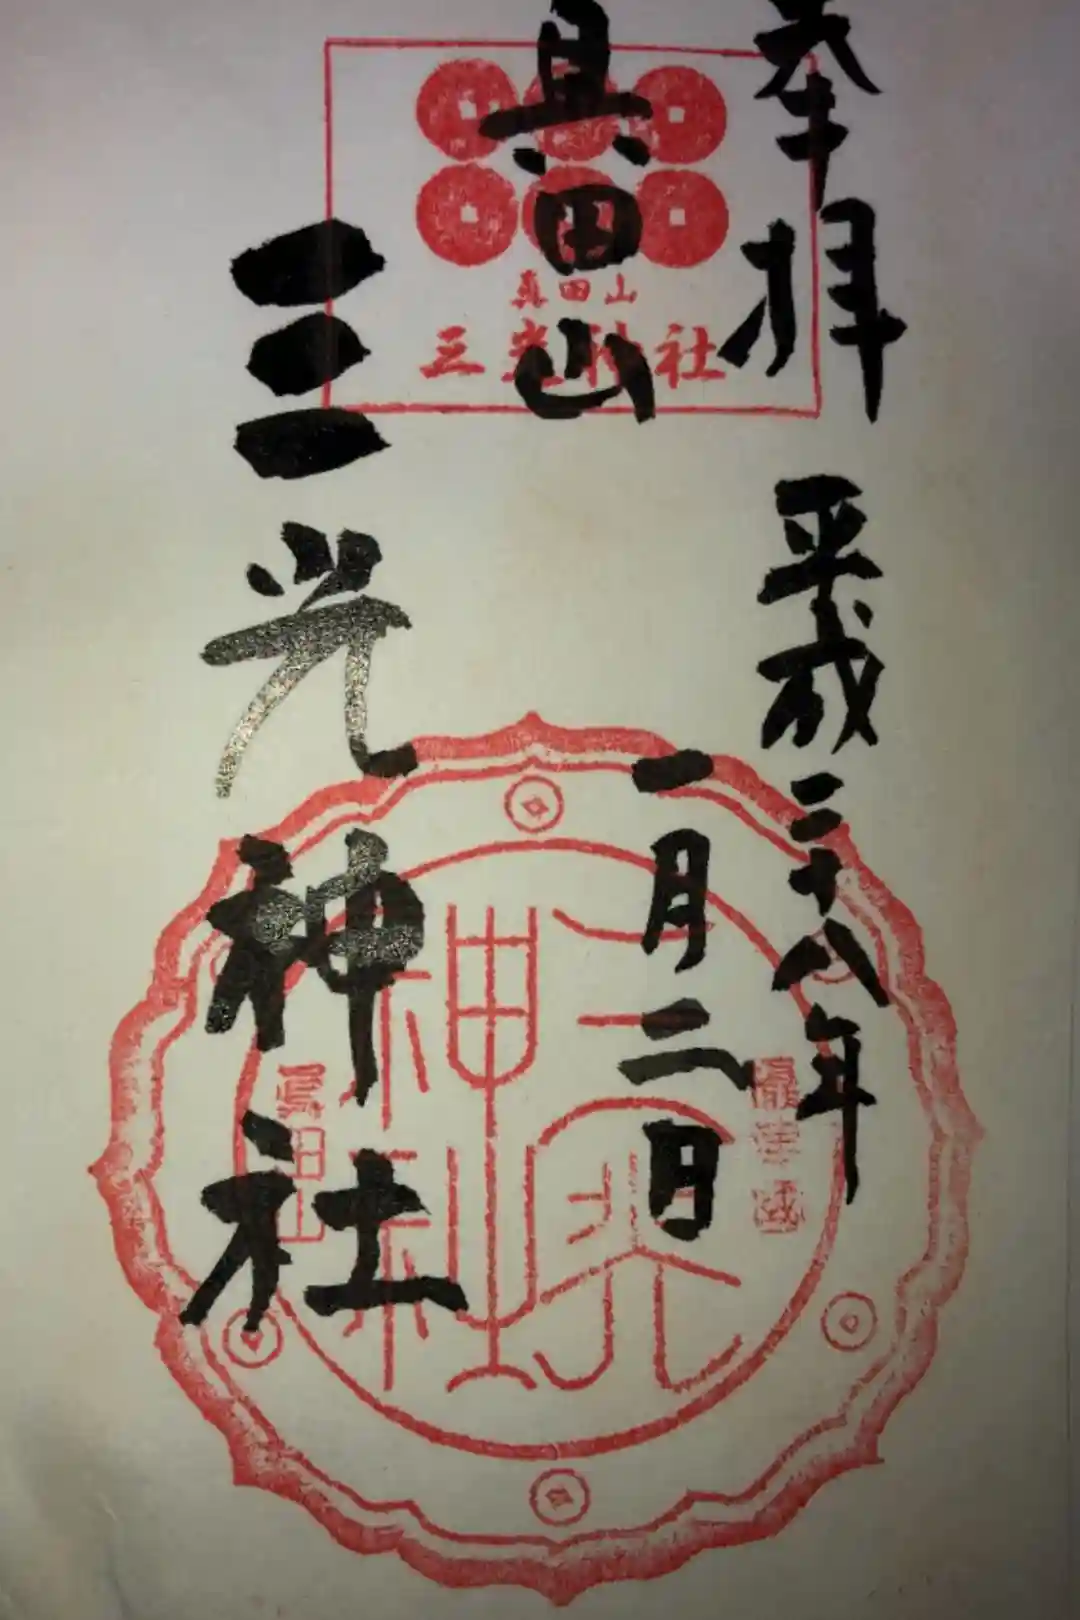 奉拝
平成二十八年
一月二日
真田山
三光神社
真田山
三光神社
三光神社
眞田山